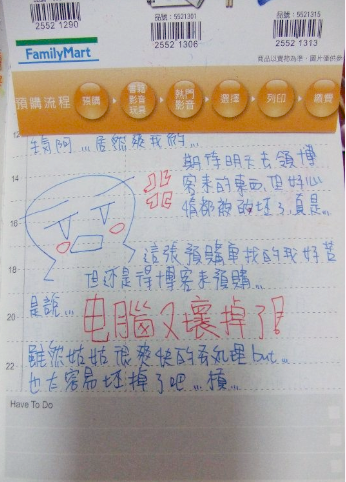 品代號：5521301
品代號：5521315
2552 1290
2552 1306
2552 1313
FamilyMart
商品以實物為準，圖片僅供參
預購流程
預購
書籍影音玩具
熱門影音
選擇
列印
繳費
12
生氣阿...居然變我的...
期待明天去領博
14
客來的東西，但好心
情都被
壞了，真是...
16
這張預購單找的我好苦
18
但还是得博客來預購...
是說...
20
电腦又壞掉了!!
22
雖然姑姑很爽快的去處理 but...
也太容易坏掉了吧...
Have To Do